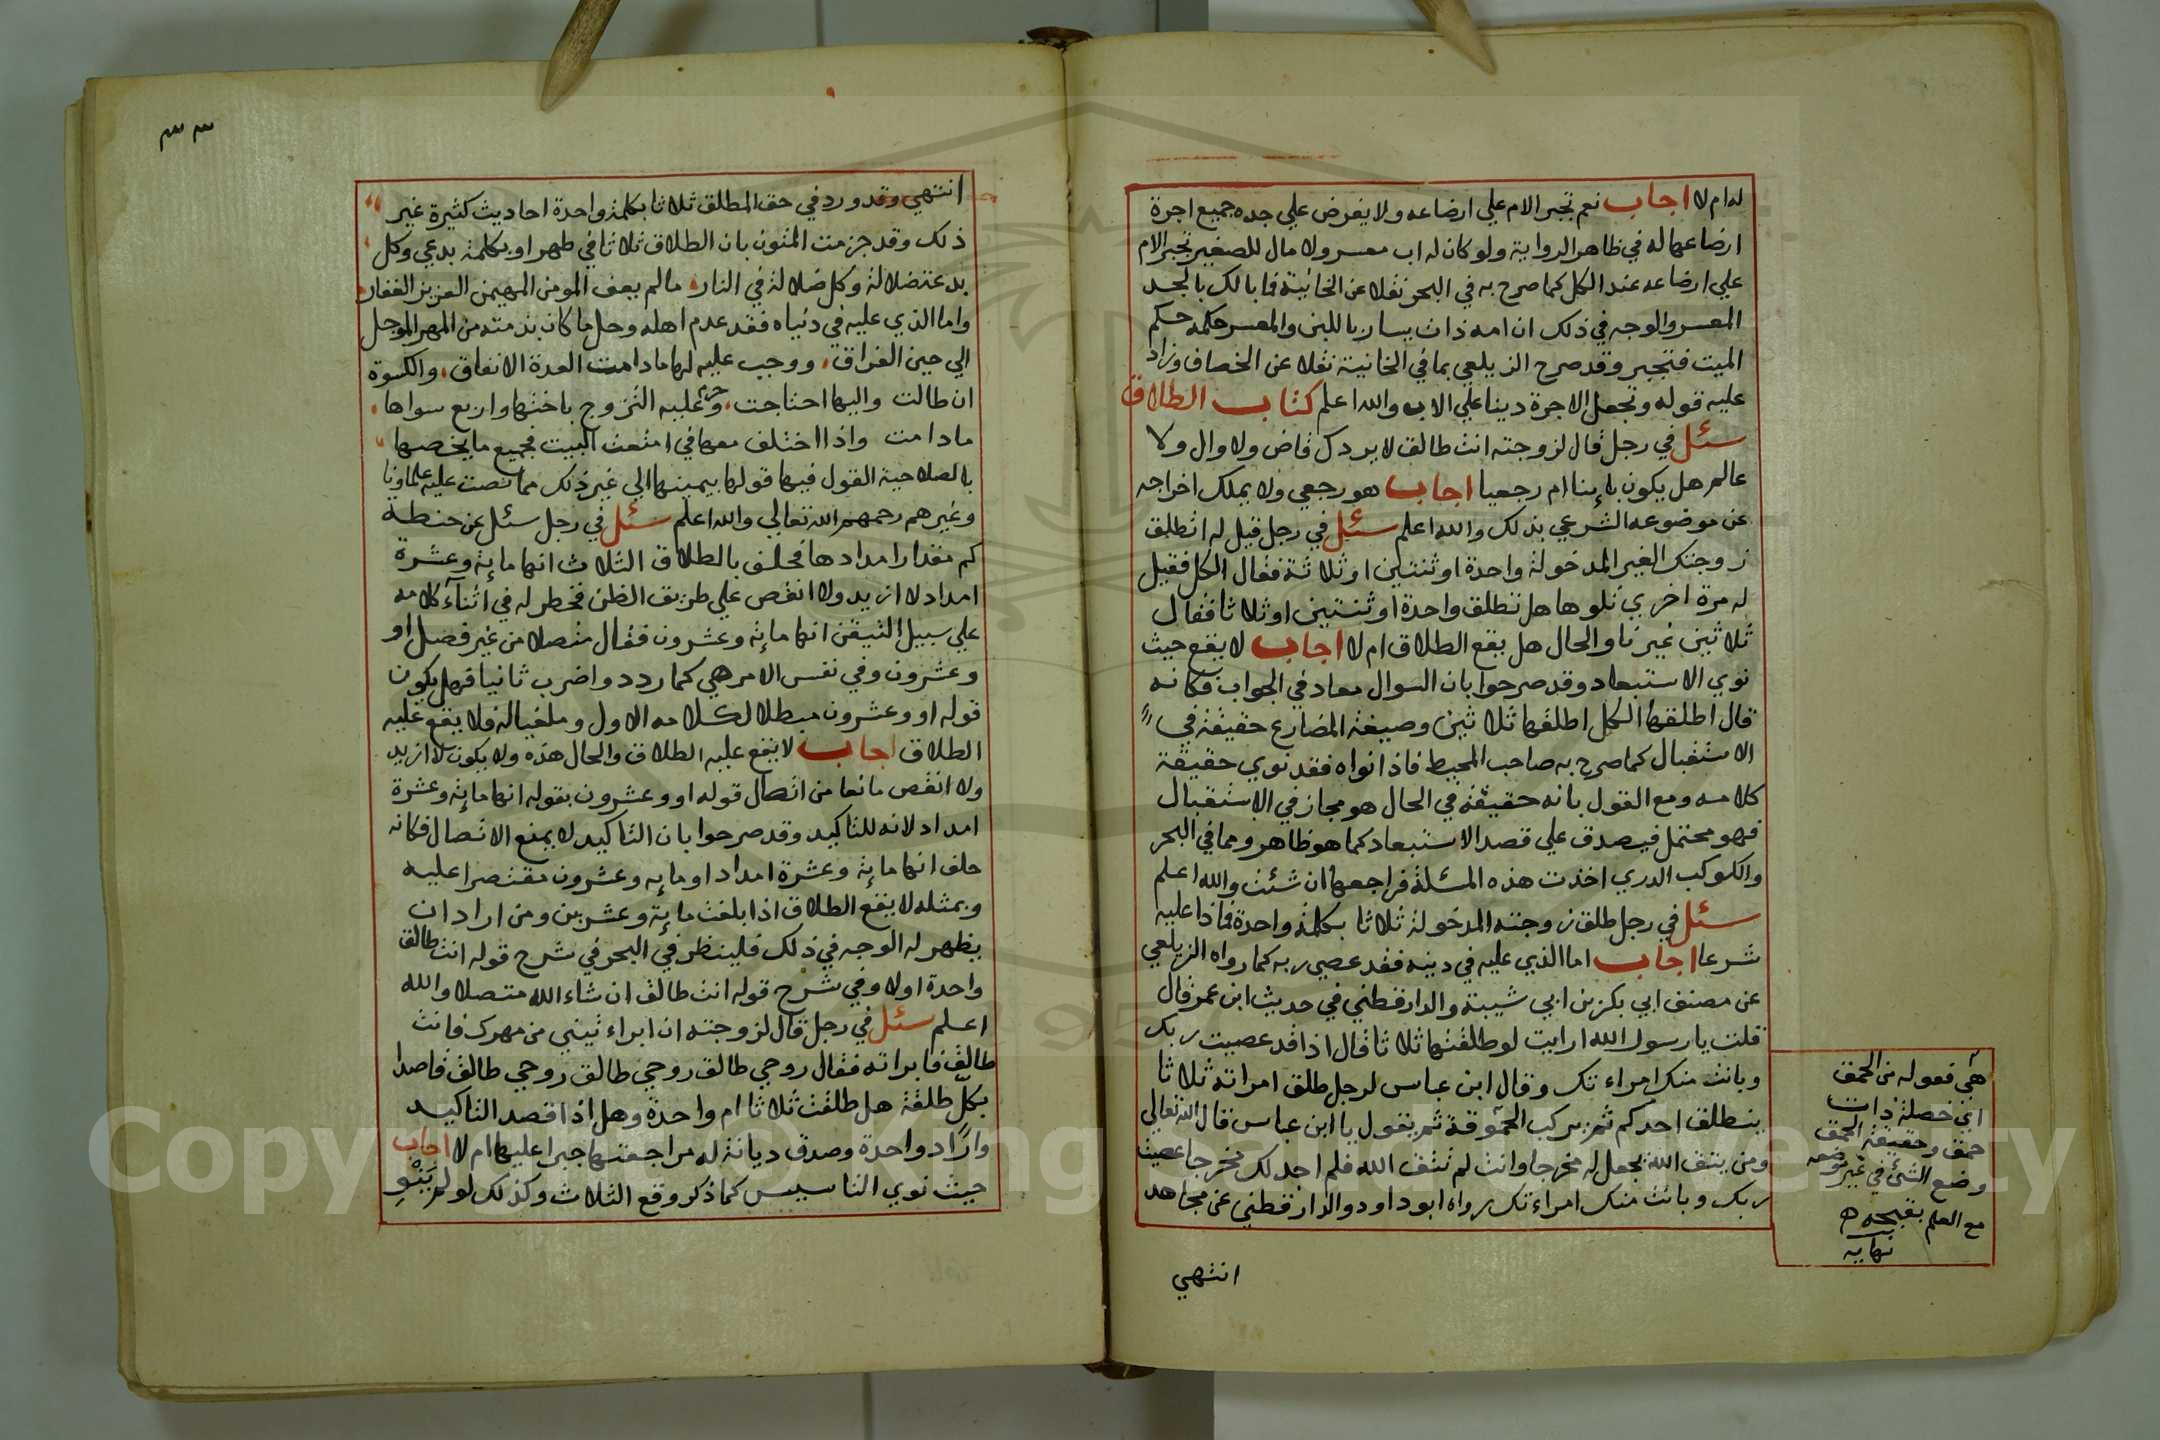 له ام لا اجاب نعم تجبر الام علي ارضاعه ولا يفرض علي جده جميع اجرة
ارضاعها له في ظاهر الرواية ولو كان له اب معسر ولا مال للصغير تجبر الام
علي ارضاعه عند الكل كما صرح به في البحر نقلا عن الخانية فما بالك بالجد
المعسر والوجه في ذلك ان امه ذات يسار باللبن والمعسر حكمه حكم
الميت فتجبر وقد صرح الزيلعي بما في الخانية نقلا عن الخصاف وزاد
عليه قوله وتجعل الاجرة دينا علي الاب والله اعلم كتاب الطلاق
سئل في رجل قال لزوجته انت طالق لا يردك قاض ولا وال ولا
عالم هل يكون باينا ام رجعيا اجاب هو رجعي ولا يملك اخراجه
عن موضوعه الشرعي بذلك والله اعلم سئل في رجل قيل له اتطلق
زوجتك الغير المدخولة واحدة او ثنتين او ثلاثة فقال الكل فقيل
له مرة اخري تلوها هل تطلق واحدة او ثنتين او ثلاثا فقال
ثلاثين غيرنا والحال هل يقع الطلاق ام لا اجاب لا يقع حيث
نوي الاستبعاد وقد صرحوا بان السوال معاد في الجواب فكانه
قال اطلقها الكل اطلقها ثلاثين وصيغة المضارع حقيقة في
الاستقبال كما صرح به صاحب المحيط فاذا نواه فقد نوي حقيقة
كلامه ومع القول بانه حقيقة في الحال هو مجاز في الاستقبال
فهو محتمل فيصدق علي قصد الاستبعاد كما هو ظاهر ومما في البحر
والكوكب الدري اخذت هذه المسئلة فراجعها ان شئت والله اعلم
سئل في رجل طلق زوجته المدخولة ثلاثا بكلمة واحدة فماذا عليه
شرعا اجاب اما الذي عليه في دينه فقد عصي ربه كما رواه الزيلعي
عن مصنف ابي بكر بن ابي شيبة والدارقطني في حديث ابن عمر قال
قلت يا رسول الله ارايت لو طلقتها ثلاثا قال اذا قد عصيت ربك
وبانت منك امراءتك وقال ابن عباس لرجل طلق امراته ثلاثا
ينطلق احدكم ثم يركب الحموقة ثم يقول يا ابن عباس قال الله تعالي
ومن يتق الله يجعل له مخرجا وانت لم تتق الله فلم اجد لك مخرجا عصيت
ربك وبانت منك امراءتك رواه ابو داود والدارقطني عن مجاهد
هي فعوله من الحمق
اي خصلة ذات
حمق وحقيقة الحمق
وضع الشئ في غير موضعه
مع العلم بقبحه ه
نهايه
انتهي
٣٣
انتهي وقد ورد في حق المطلق ثلاثا بكلمة واحدة احاديث كثيرة غير
ذلك وقد جزمت المتون بان الطلاق ثلاثا في طهر او بكلمة بدعي وكل
بدعة ضلالة وكل ضلالة في النار ما لم يعف المومن المهيمن العزيز الغفار
واما الذي عليه في دنياه فقد عدم اهله وحل ما كان بذمته من المهر الموجل
الي حين الفراق ووجب عليه لها ما دامت العدة الانفاق والكسوة
ان طالت واليها احتاجت وحرم عليه التزوج باختها واربع سواها
ما دامت واذا اختلف معها في امتعت البيت فجميع ما يخصها
بالصلاحية القول فيها قولها بيمينها الي غير ذلك مما نصت عليه علماونا
وغيرهم رحمهم الله تعالي والله اعلم سئل في رجل سئل عن حنطة
كم مقدار امدادها فحلف بالطلاق الثلاث انها ماية وعشرة
امداد لا ازيد ولا انقص علي طريق الظن فخطر له في اثناء كلامه
علي سبيل التيقن انها ماية وعشرون فقال متصلا من غير فصل او
وعشرون وفي نفس الامر هي كما ردد واضرب ثانيا فهل يكون
قوله او وعشرون مبطلا لكلامه الاول وملغيا له فلا يقع عليه
الطلاق اجاب لا يقع عليه الطلاق والحال هذه ولا يكون لا ازيد
ولا انقص مانعا من اتصال قوله او وعشرون بقوله انها ماية وعشرة
امداد لانه للتاكيد وقد صرحوا بان التاكيد لا يمنع الاتصال فكانه
حلف انها ماية وعشرة امداد او مايه وعشرون مقتصرا عليه
وبمثله لا يقع الطلاق اذا بلغت ماية وعشرين ومن اراد ان
يظهر له الوجه في ذلك فلينظر في البحر في شرح قوله انت طالق
واحدة اولا وفي شرح قوله انت طالق ان شاء الله متصلا والله
اعلم سئل في رجل قال لزوجته ان ابراءتيني من مهرك فانت
طالق فابراته فقال روحي طالق روحي طالق روحي طالق قاصدا
بكل طلقة هل طلقت ثلاثا ام واحدة وهل اذا قصد التاكيد
واراد واحدة وصدق ديانة له مراجعتها جبرا عليها ام لا اجاب
حيث نوي التاسيس كما ذكر وقع الثلاث وكذلك لو لم ينو
Copyright © King Saud University